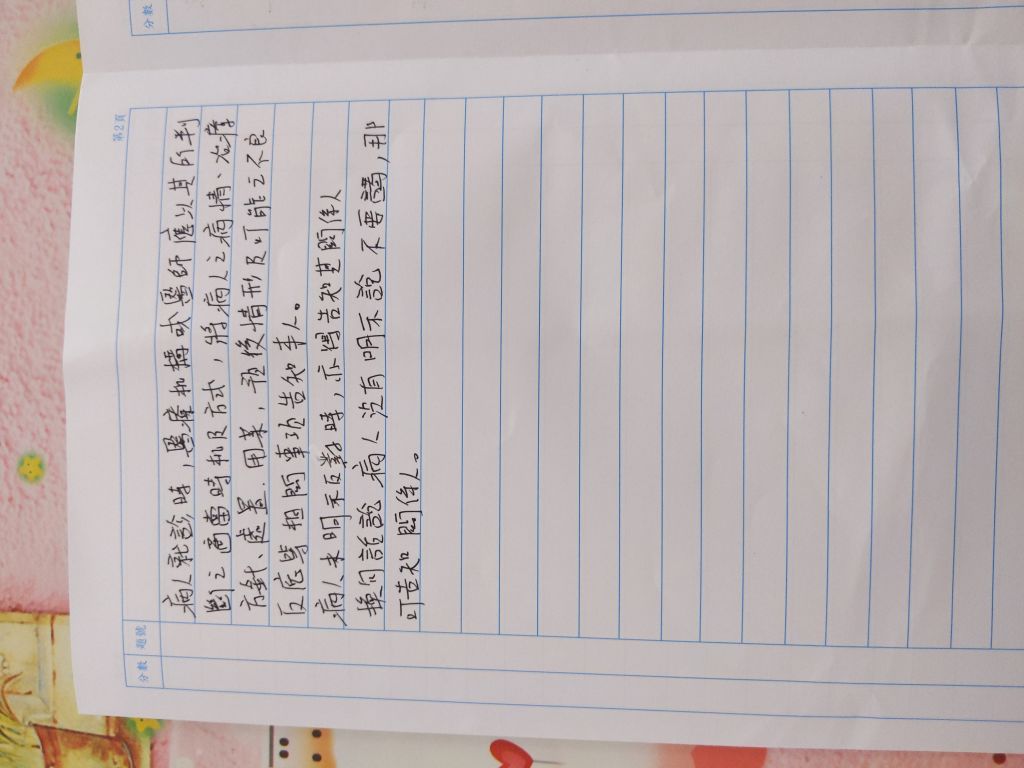 分數
第2頁
分數 題號
病人就診時,醫療机構或醫師應以其所判
斷之適當時机及方式,將病人之病情、治療
方針、處置、用藥,預後情形及可能之不良
反應等相關事項告知本人。
病人未明示反對時,亦得告知其關係人
換句話說 病人沒有明示說不要講,那
可告知關係人。